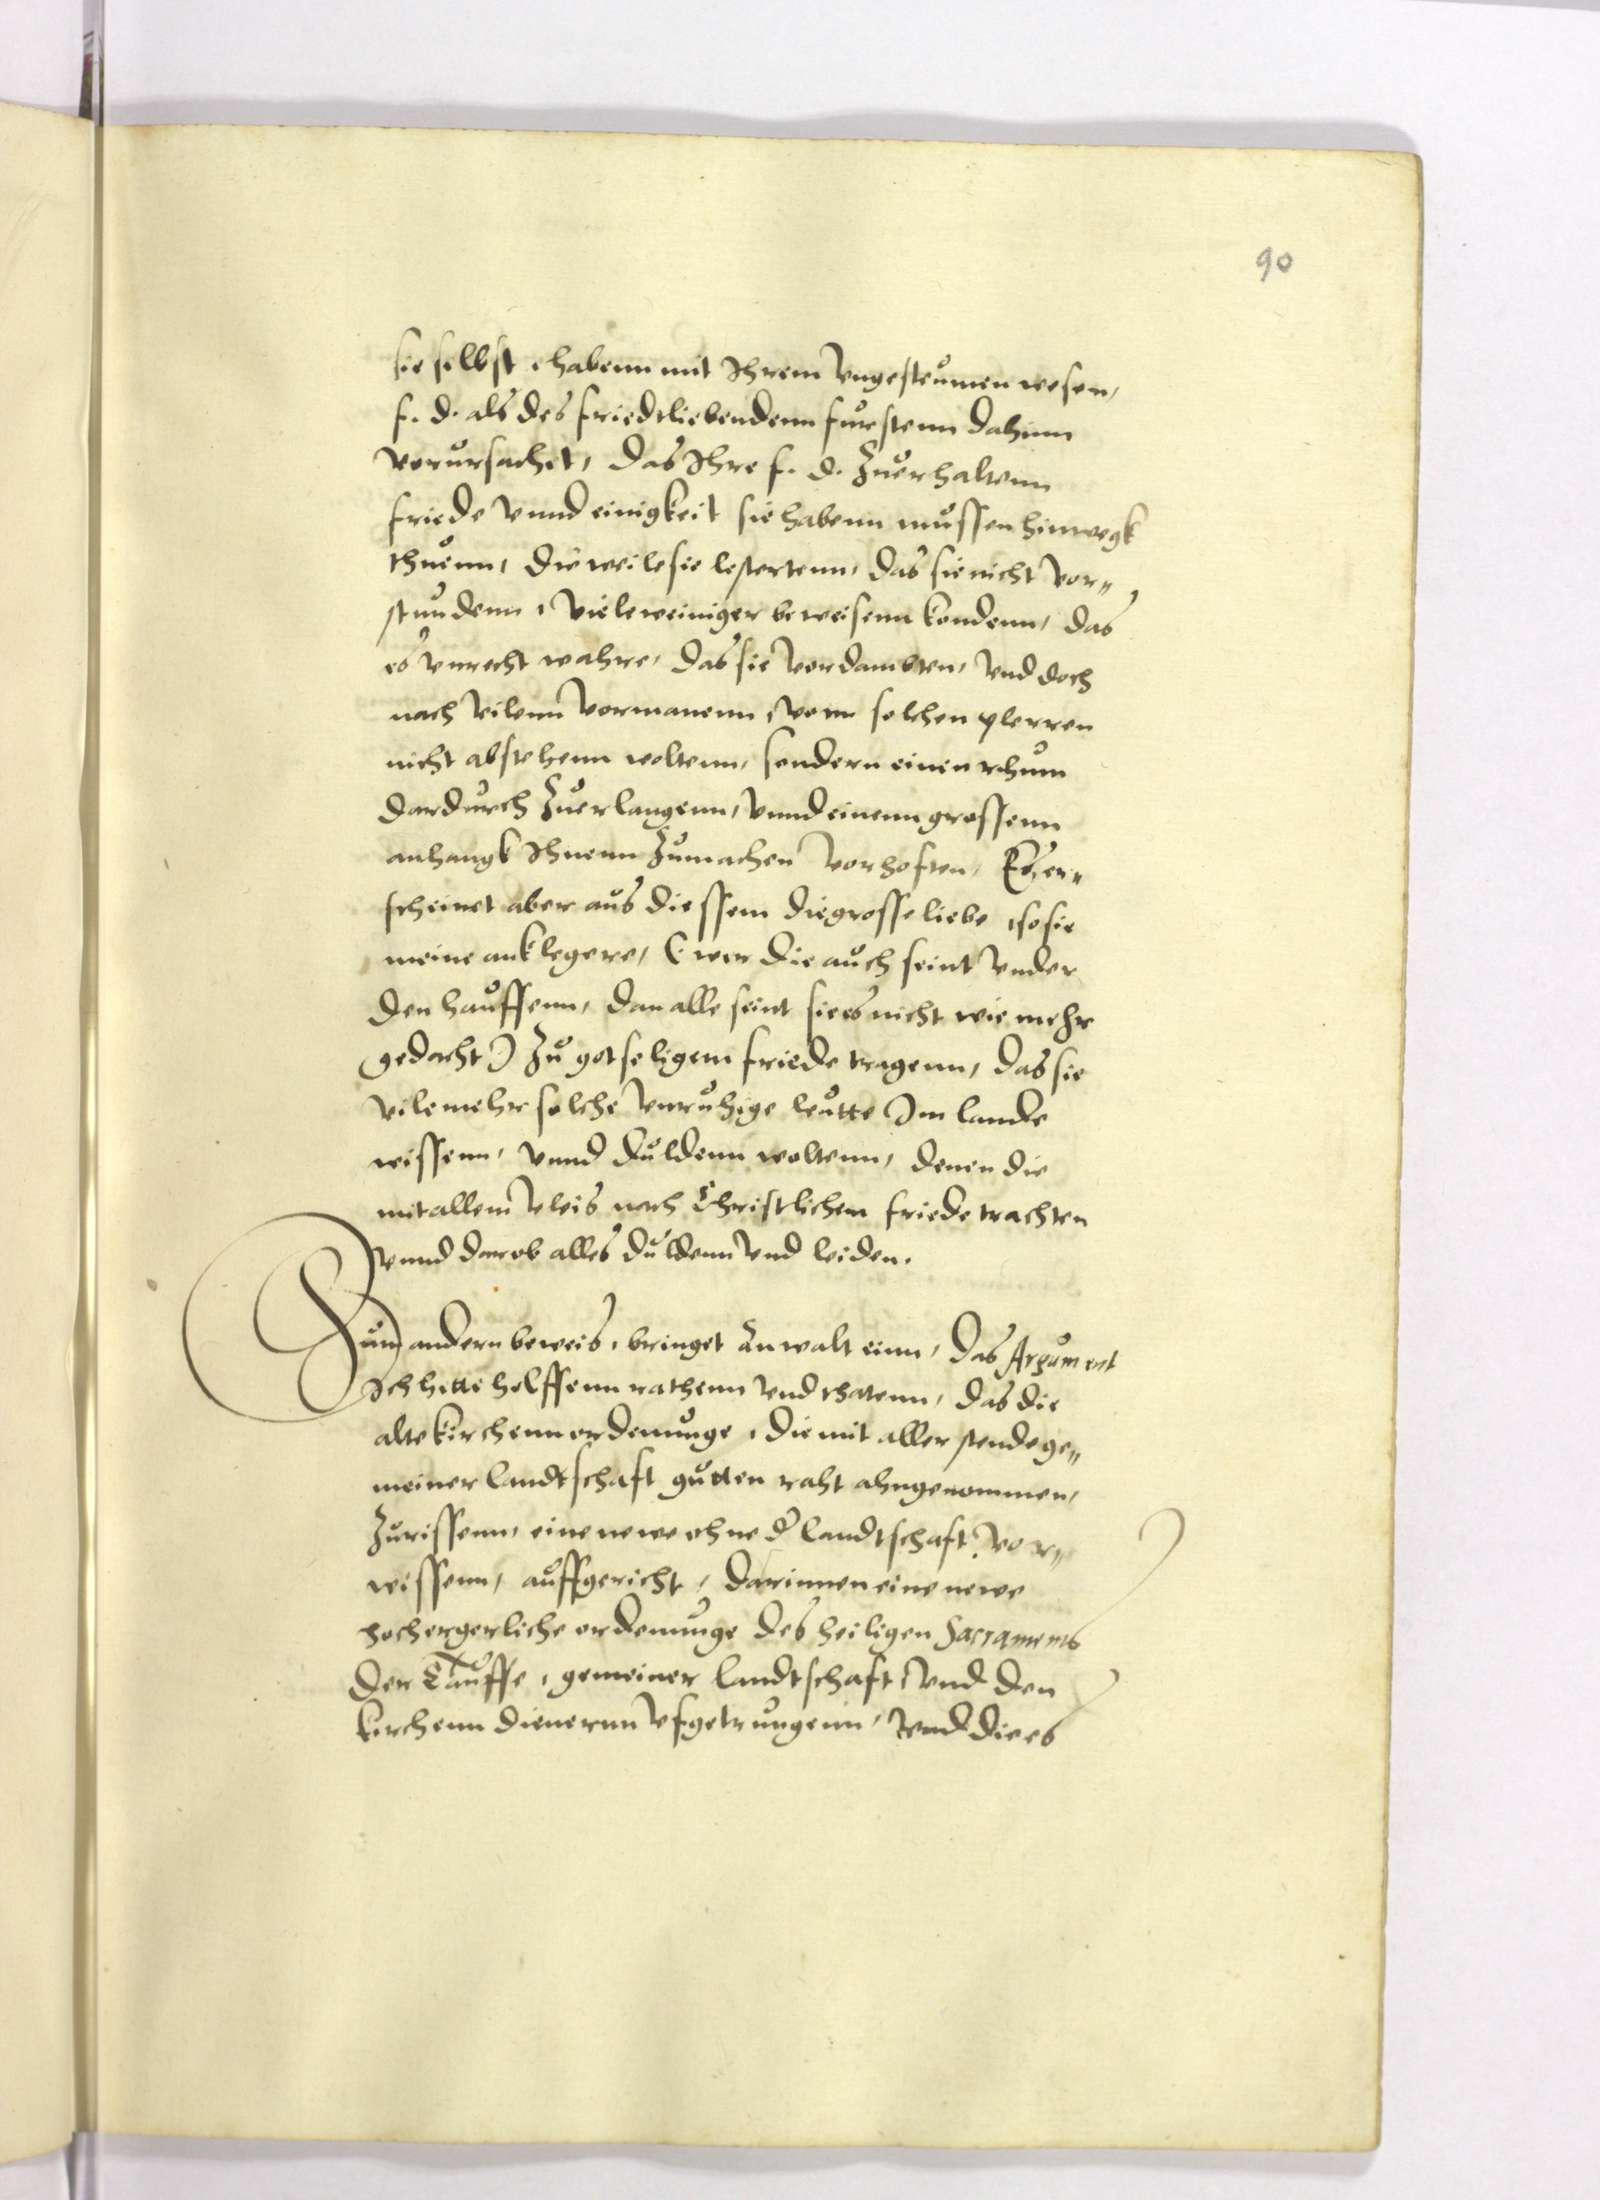 90
sie selbst, habenn mit Ihrem Vngesteumen wesen,
f. d. als des friedtliebendenn furstenn dahinn
Vorursachet, das Ihre f. d. Zuerhaltenn
friede Vnnd einigkeit sie habenn mussen hinwegk
thuenn, die weile sie lestertenn, das sie nicht Vor„
stundenn, Viele weiniger beweisenn kondenn, das
es Vnrecht wahre, das sie Vordambten, Vnd doch
nach Vilenn Vormanenn, Vonn solchen plerren
nicht abstehenn woltenn, sondern einen rhum
dardurch Zuerlangenn, Vnnd einenn grossenn
anhangk Ihnenn Zumachen Vorhoften, Es er„
scheinet aber aus diessem die grosse liebe, so sie
meine anklegere, (wer die auch seint Vnder
den hauffenn, dan alle seint sie es nicht wie mehr
gedacht) Zu gotseligem friede tragenn, das sie
Vile mehr solche Vnruhige leutte Im lande
wissenn, Vnnd duldenn woltenn, denen die
mit allem Vleis nach Christlichem friede trachten
Vnnd darob alles duldenn Vnd leiden.
Zum andern beweis, bringet Anwalt einn, das Argument
Ich hette helffenn rathenn Vnd thatenn, das die
alte kirchennordenunge, die mit aller stende ge„
meiner landtschaft gutten raht ahngenommen,
Zurissenn, eine newe ohne der landtschaft Vor„
wissenn, auffgericht, darinnen eine newe
hochergerliche ordenunge des heiligen Sacraments
der Tauffe, gemeiner landtschaft, Vnd den
kirchenn dienernn Vfgetrungenn, Vnd die es